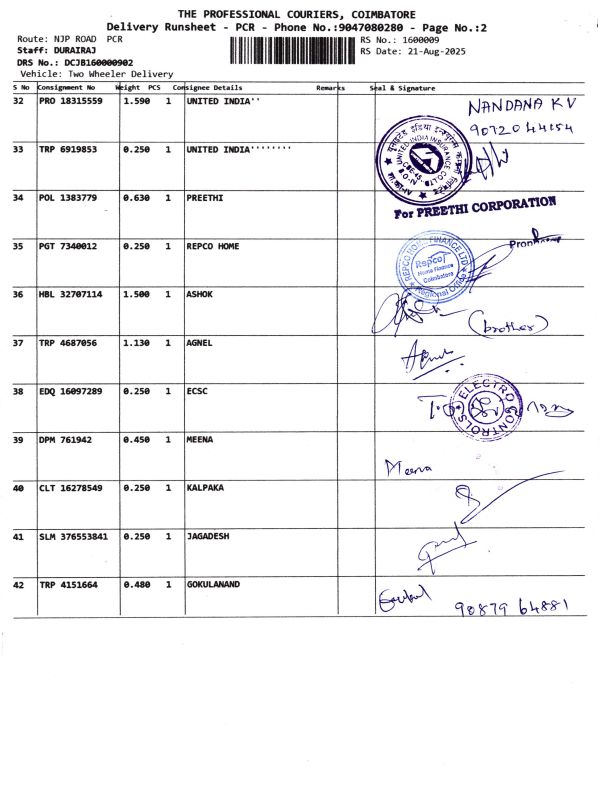 THE PROFESSIONAL COURIERS, COIMBATORE
Delivery Runsheet - PCR - Phone No.:9047080280 - Page No.:2
Route: NJP ROAD PCR
RS No.: 1600009
Staff: DURAIRAJ
RS Date: 21-Aug-2025
DRS No.: DCJB160000902
Vehicle: Two Wheeler Delivery
S No Consignment No Weight PCS Consignee Details Remarks Seal & Signature
32 PRO 18315559 1.590 1 UNITED INDIA'' NANDANA K V
90720 44154
33 TRP 6919853 0.250 1 UNITED INDIA''''''''
UNITED INDIA INSURANCE CO. LTD.
34 POL 1383779 0.630 1 PREETHI
For PREETHI CORPORATION
35 PGT 7340012 0.250 1 REPCO HOME
REPCO HOME FINANCE LTD
Repco
Home Finance
Coimbatore
Regional Office
36 HBL 32707114 1.500 1 ASHOK
(brother)
37 TRP 4687056 1.130 1 AGNEL
38 EDQ 16097289 0.250 1 ECSC
ELECTRO CONTROLS
39 DPM 761942 0.450 1 MEENA
Meena
40 CLT 16278549 0.250 1 KALPAKA
41 SLM 376553841 0.250 1 JAGADESH
42 TRP 4151664 0.480 1 GOKULANAND
90879 64881